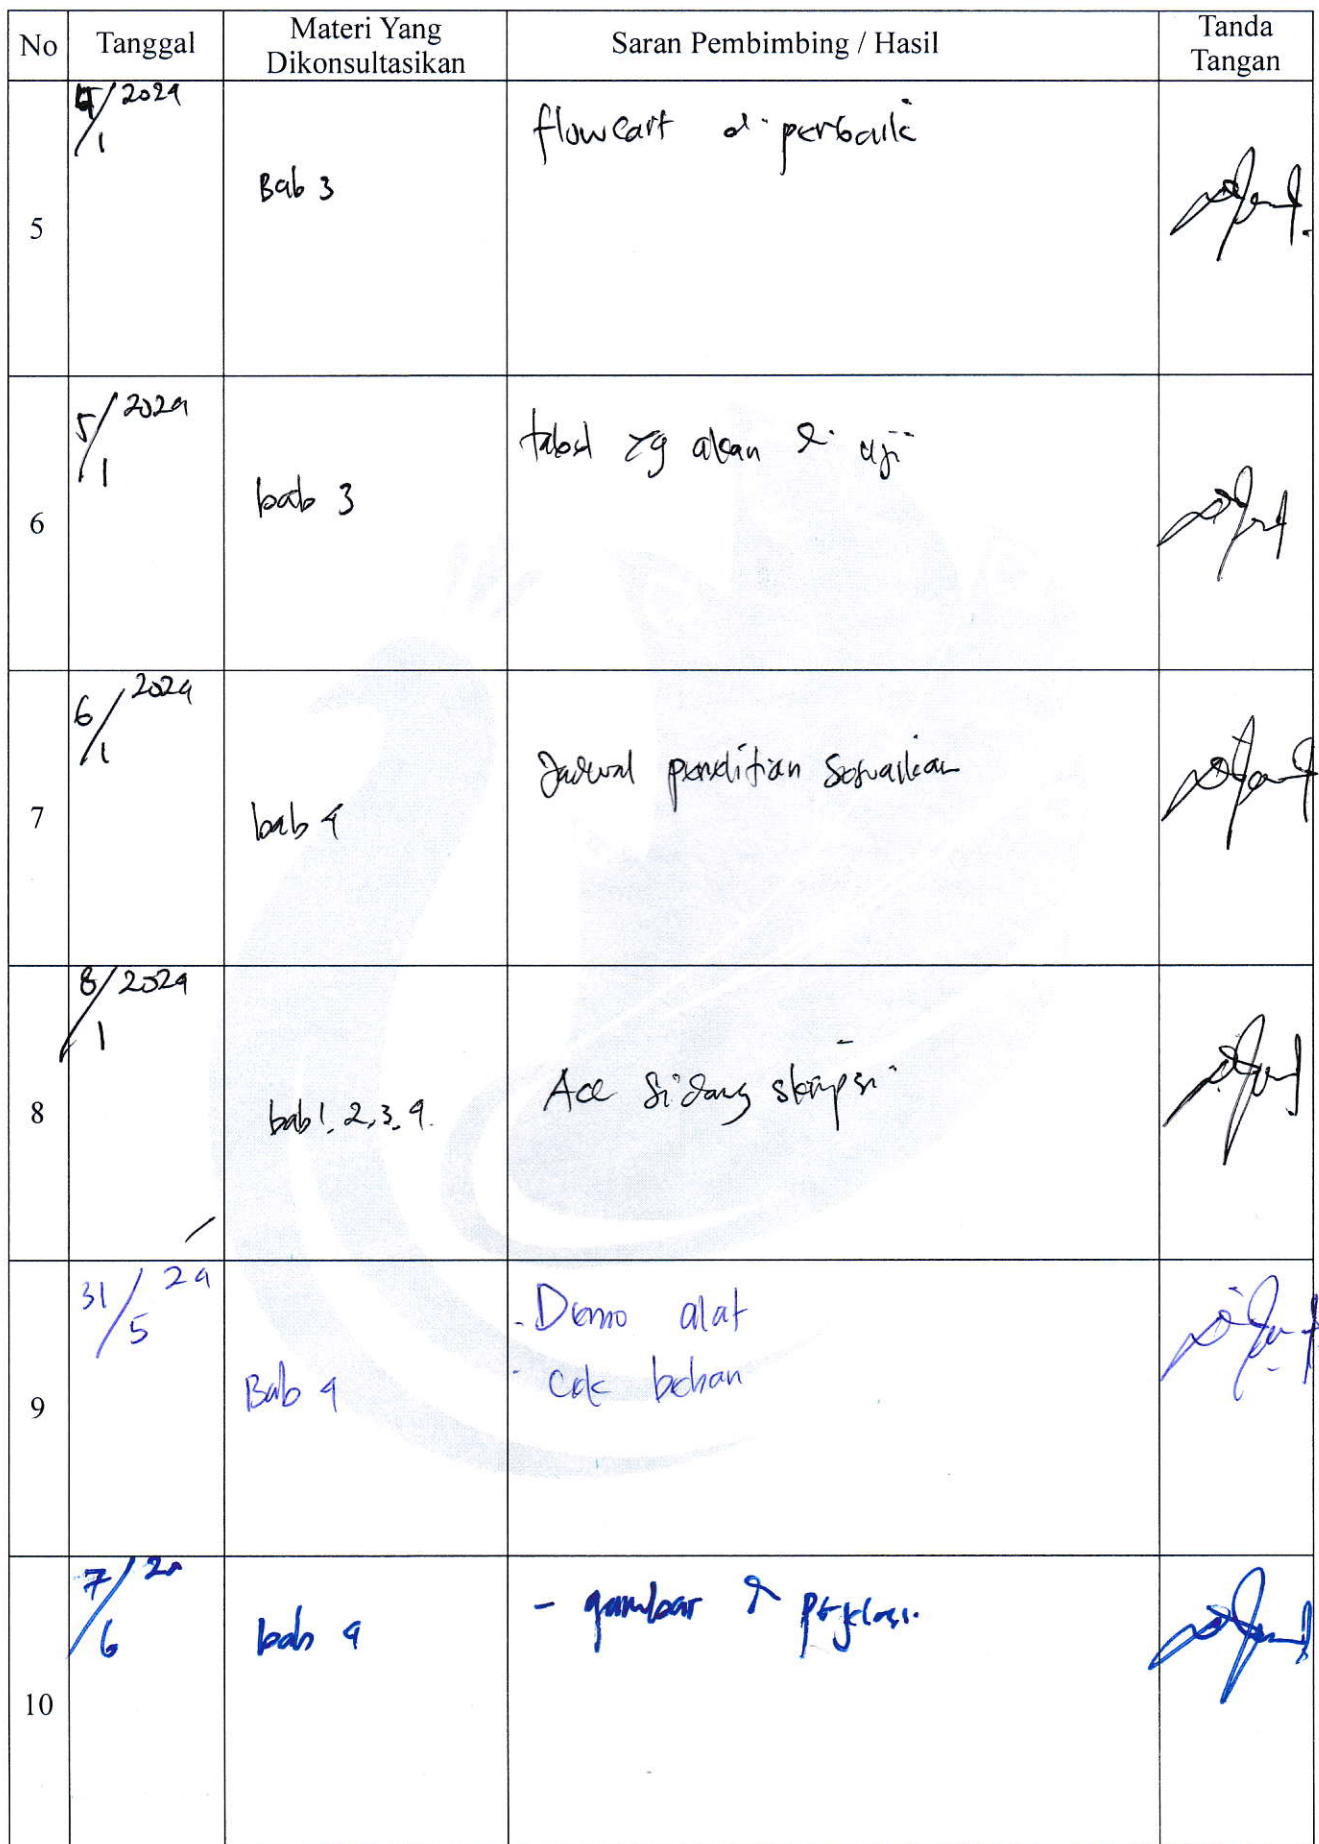 No Tanggal Materi Yang Dikonsultasikan Saran Pembimbing / Hasil Tanda Tangan
5 4/1 2024 Bab 3 flowcart di perbaiki
6 5/1 2024 bab 3 tabel yg akan di uji
7 6/1 2024 bab 4 Jadwal penelitian Sesuaikan
8 8/1 2024 bab 1, 2, 3, 4. Acc Sidang skripsi
9 31/5 24 Bab 4 - Demo alat
- Cek bahan
10 7/6 24 bab 4 - gambar di perjelas